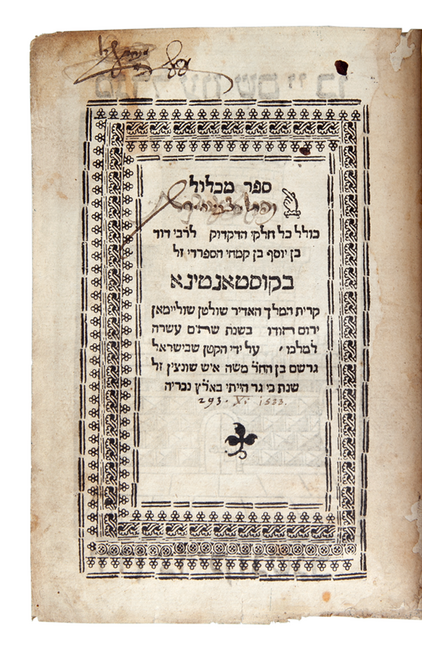 ספר מכלול
כולל כל חלקי הדקדוק לרבי דוד
בן יוסף בן קמחי הספרדי זל
בקוסטאנטינא
קרית המלך האדיר שולטן שולימאן
ירום הודו בשנת שתים עשרה
למלכו על ידי הקטן שבישראל
גרשם בן החר משה איש שונצין זל
שנת כי גר הייתי בארץ נכריה
293. 1533